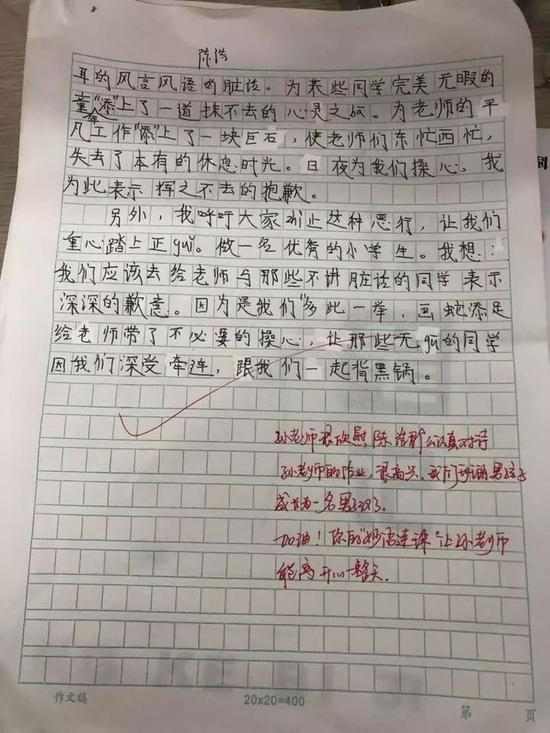 陈浩
耳的风言风语的脏话。为某些同学完美无暇的
童年"添"上了一道抹不去的心灵之灰。为老师的平
凡工作"添"上了一块巨石,使老师们东忙西忙,
失去了本有的休息时光。日夜为我们操心,我
为此表示挥之不去的抱歉。
另外,我呼吁大家制止这种恶行,让我们
重心踏上正guǐ。做一名优秀的小学生。我想:
我们应该去给老师与那些不讲脏话的同学表示
深深的歉意。因为是我们"多此一举,画蛇添足
给老师带了不必要的操心,让那些无gū的同学
因我们深受牵连,跟我们一起背黑锅。
孙老师很欣慰陈浩那么认真对待
孙老师的作业,很高兴,我们班的男孩子
成长为一名男子汉了。
加油!你的"妙语连珠"让孙老师
能离开心一整天。
作文稿
20x20=400
第 页